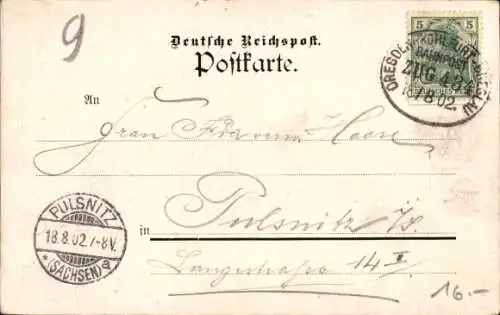 9
Deutsche Reichspost.
Postkarte.
5 5
DRESDEN-KOHLFURT-
BAHNPOST
ZUG 43
18.8.02.
An
Frau
PULSNITZ
18.8.02. 7-8V.
* (SACHSEN) a
in Pulsnitz i/S.
Langestrasse 14 I
16.-